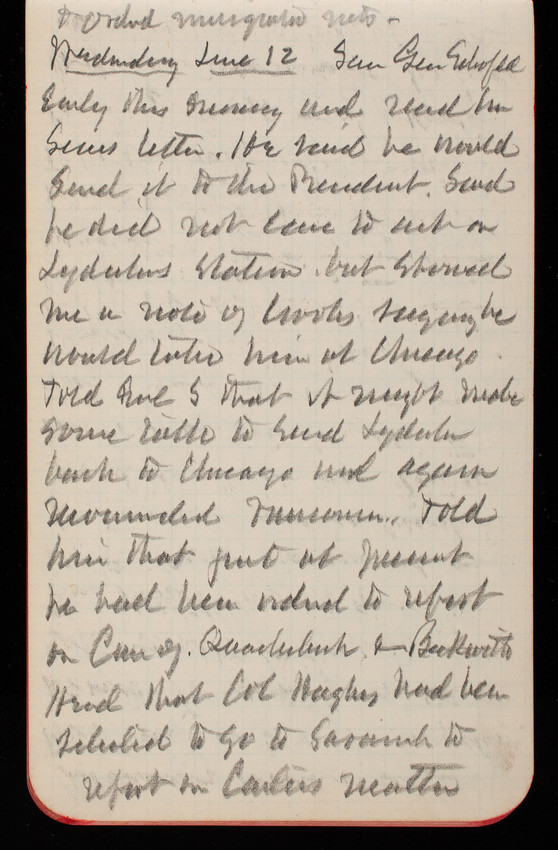 Wednesday June 12 Saw Gen Schofield
Early this morning and read him
letter. He said he would
Send it to the President. Said
he did not care to act on
Lydeckers Station but showed
me a note of Crooks saying he
would take him at Chicago
Told Gnl S that it might make
some talk to send Lydecker
back to Chicago and again
recommended Vancouver. Told
him that just at present
he had been ordered to report
on Case of. Quackenbush & Beckwith
Heard that Col Hughes had been
Selected to go to Savannah to
report on Carters matter